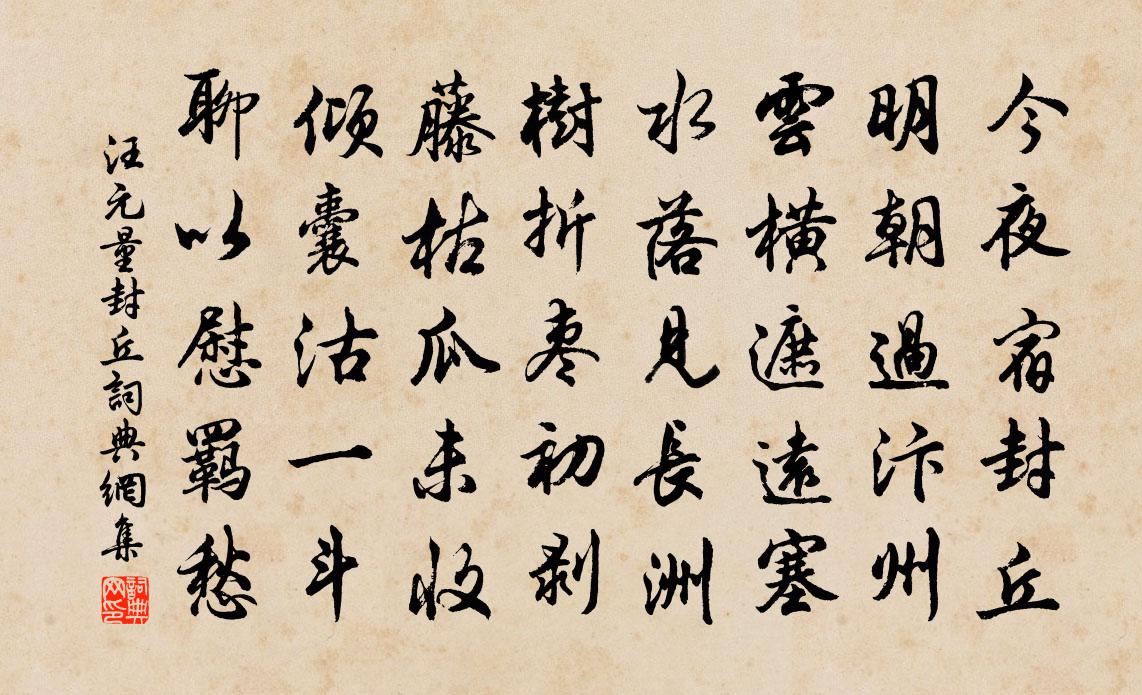 今夜宿封丘
明朝過汴州
雲橫遮遠塞
水落見長洲
樹折棗初剝
藤枯瓜未收
傾囊沽一斗
聊以慰羈愁
汪元量封丘詞典網集
詞典網印